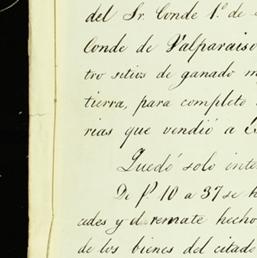 del Sr. Conde 1.º de
Conde de Valparaiso
tro sitios de ganado m
tierra, para completo
rias que vendió a
Quedó solo inte
De f.s 10 a 37 se h
cedes y el remate hecho
de los bienes del citado